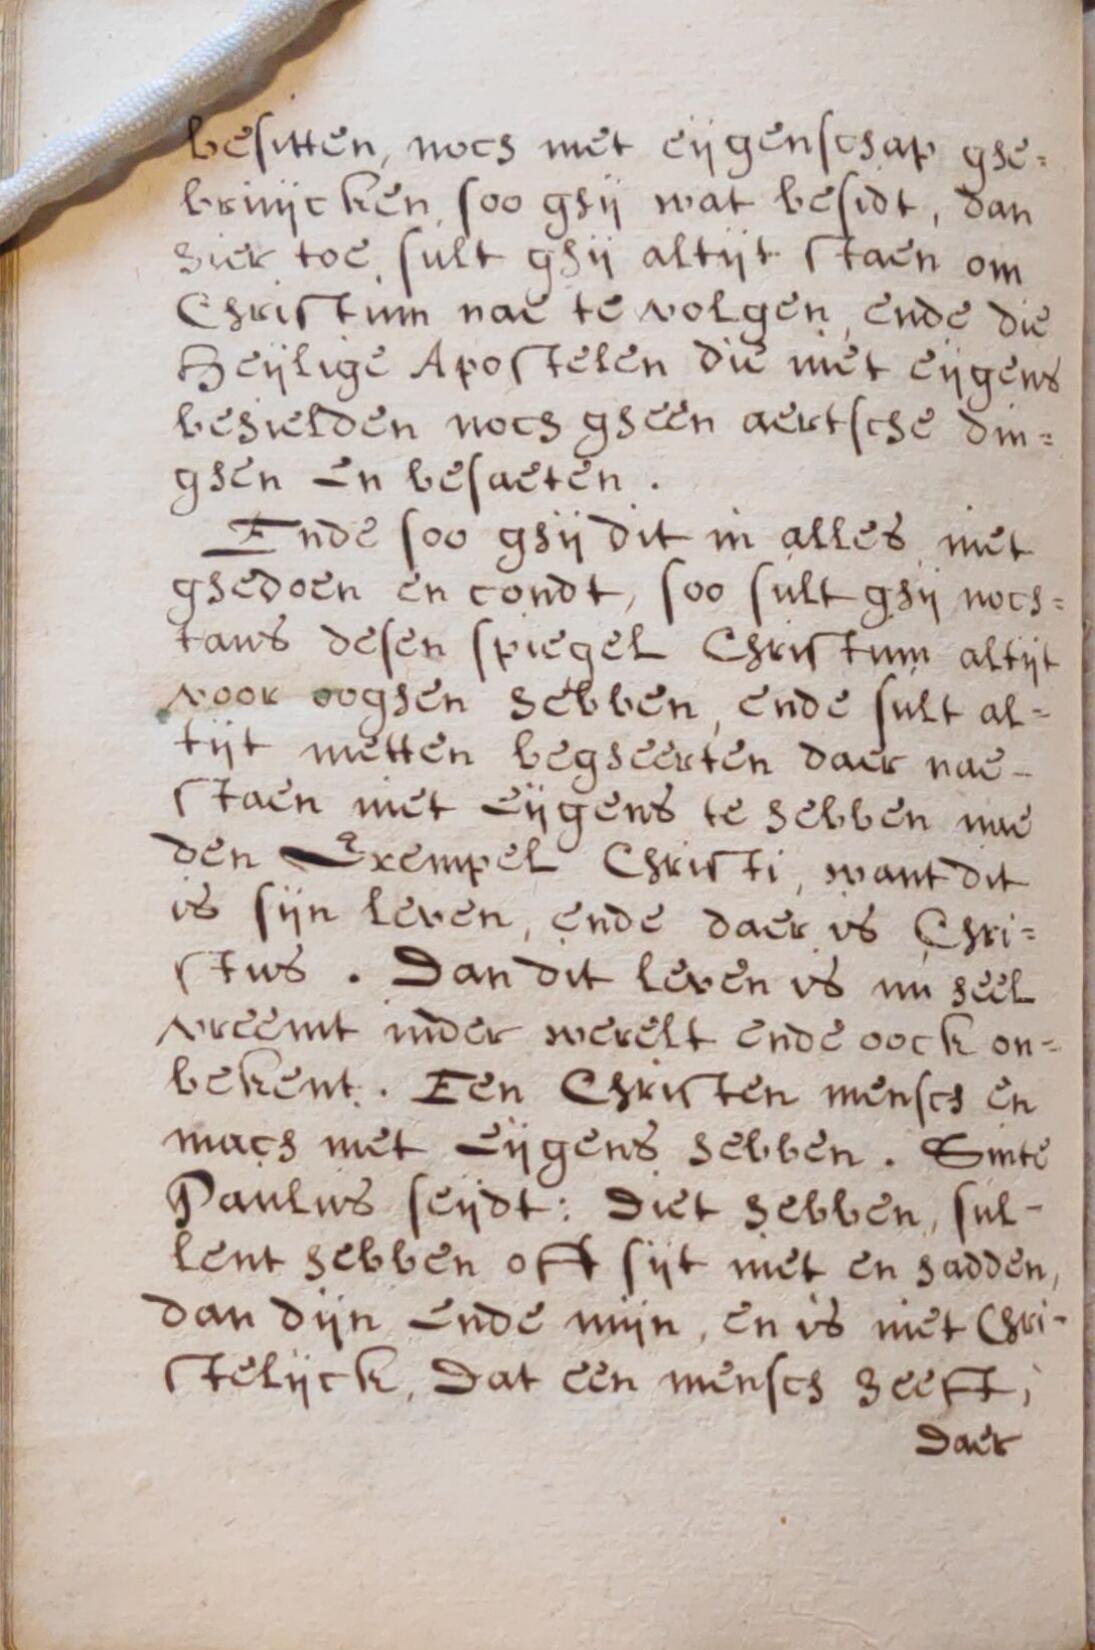 besitten, noch met eijgenschap ghe=
bruijcken, soo ghij wat besidt, dan
hier toe, sult ghij altijt staen om
Christum nae te volgen, ende die
Heijlige Apostelen die niet eijgens
behielden noch gheen aertsche din=
ghen en besaeten.
Ende soo ghij dit in alles niet
ghedoen en condt, soo sult ghij noch=
tans desen spiegel Christum altijt
voor ooghen hebben, ende sult al=
tijt metten begheerten daer nae-
staen niet eijgens te hebben nae
den Exempel Christi, want dit
is sijn leven, ende daer is Chri=
stus. Dan dit leven is nu heel
vreemt inder werelt ende oock on=
bekent. Een Christen mensch en
mach niet eijgens hebben. Sinte
Paulus seijdt: Diet hebben, sul-
lent hebben oft sijt niet en hadden,
dan dijn ende mijn, en is niet Chri-
stelijck, Dat een mensch heeft,
Daer